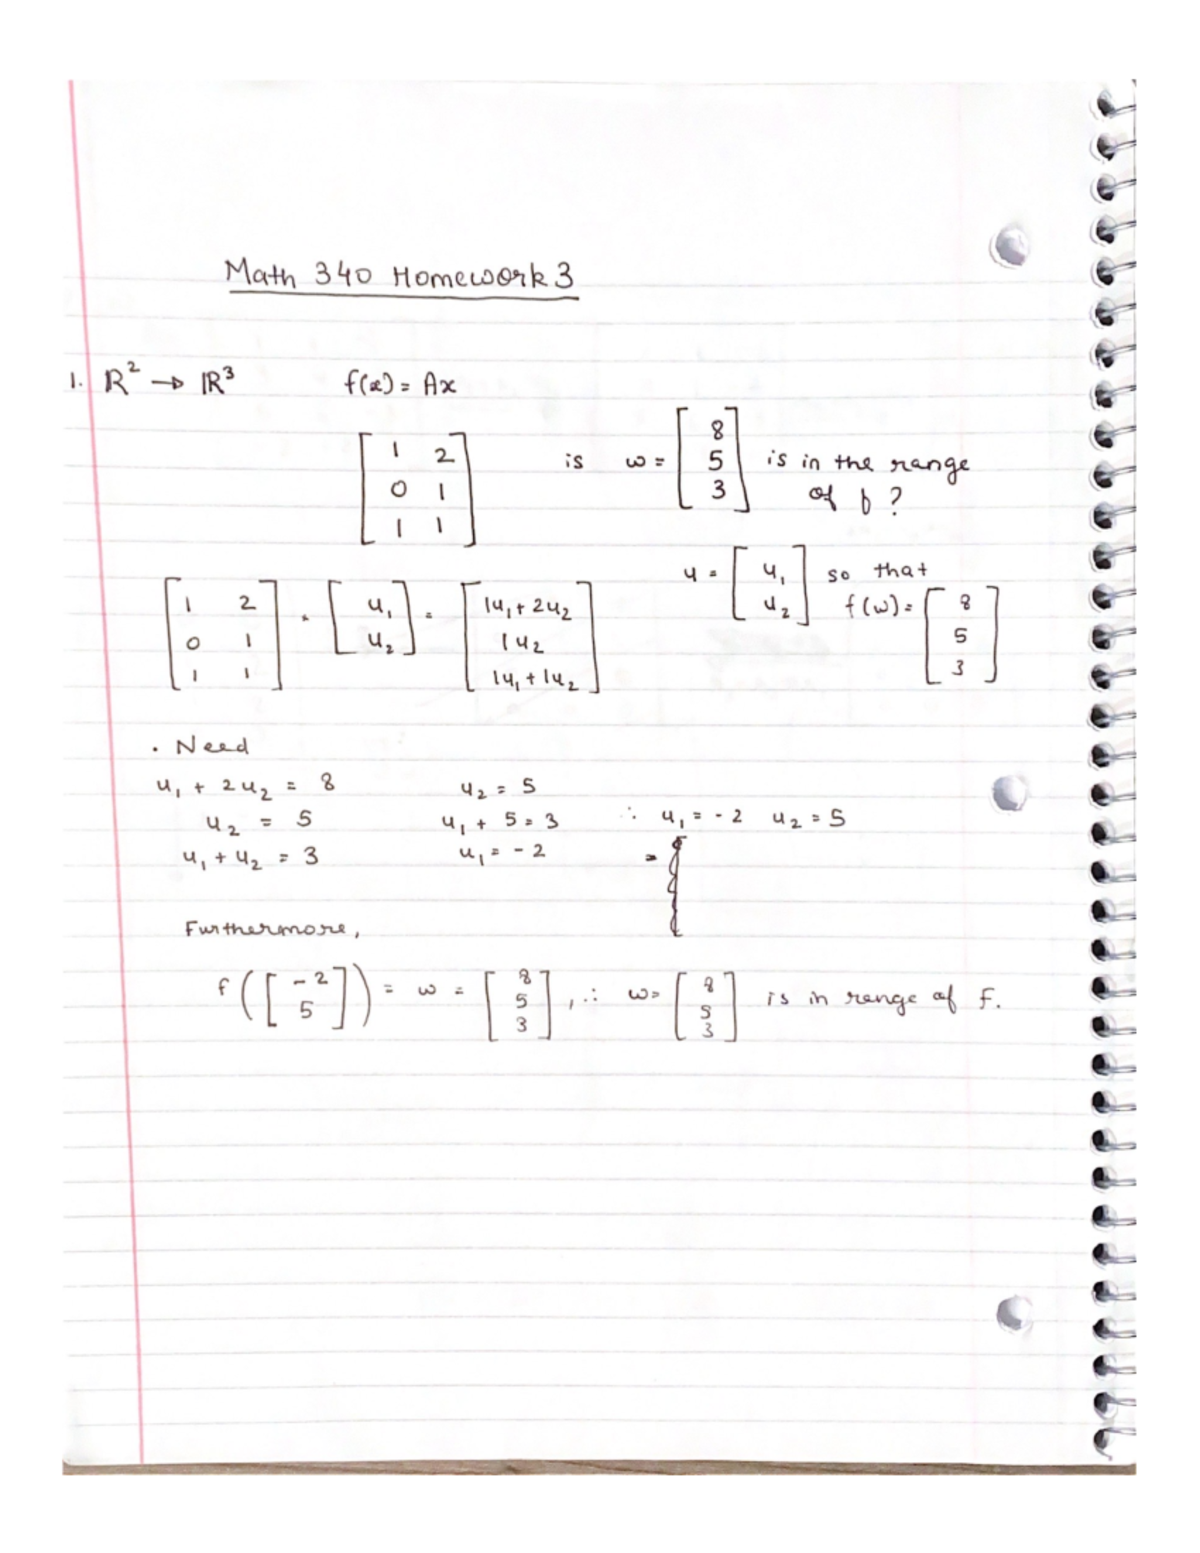 Math 340 Homework 3
1. R² → R³ f(x) = Ax
[1 2; 0 1; 1 1] is w = [8; 5; 3] is in the range
of f ?
u = [u₁; u₂] so that
[1 2; 0 1; 1 1] · [u₁; u₂] = [1u₁ + 2u₂; 1u₂; 1u₁ + 1u₂] f(w) = [8; 5; 3]
· Need
u₁ + 2u₂ = 8 u₂ = 5
u₂ = 5 u₁ + 5 = 3 ∴ u₁ = -2 u₂ = 5
u₁ + u₂ = 3 u₁ = -2 =
Furthermore,
f([-2; 5]) = w = [8; 5; 3], ∴ w = [8; 5; 3] is in range of F.